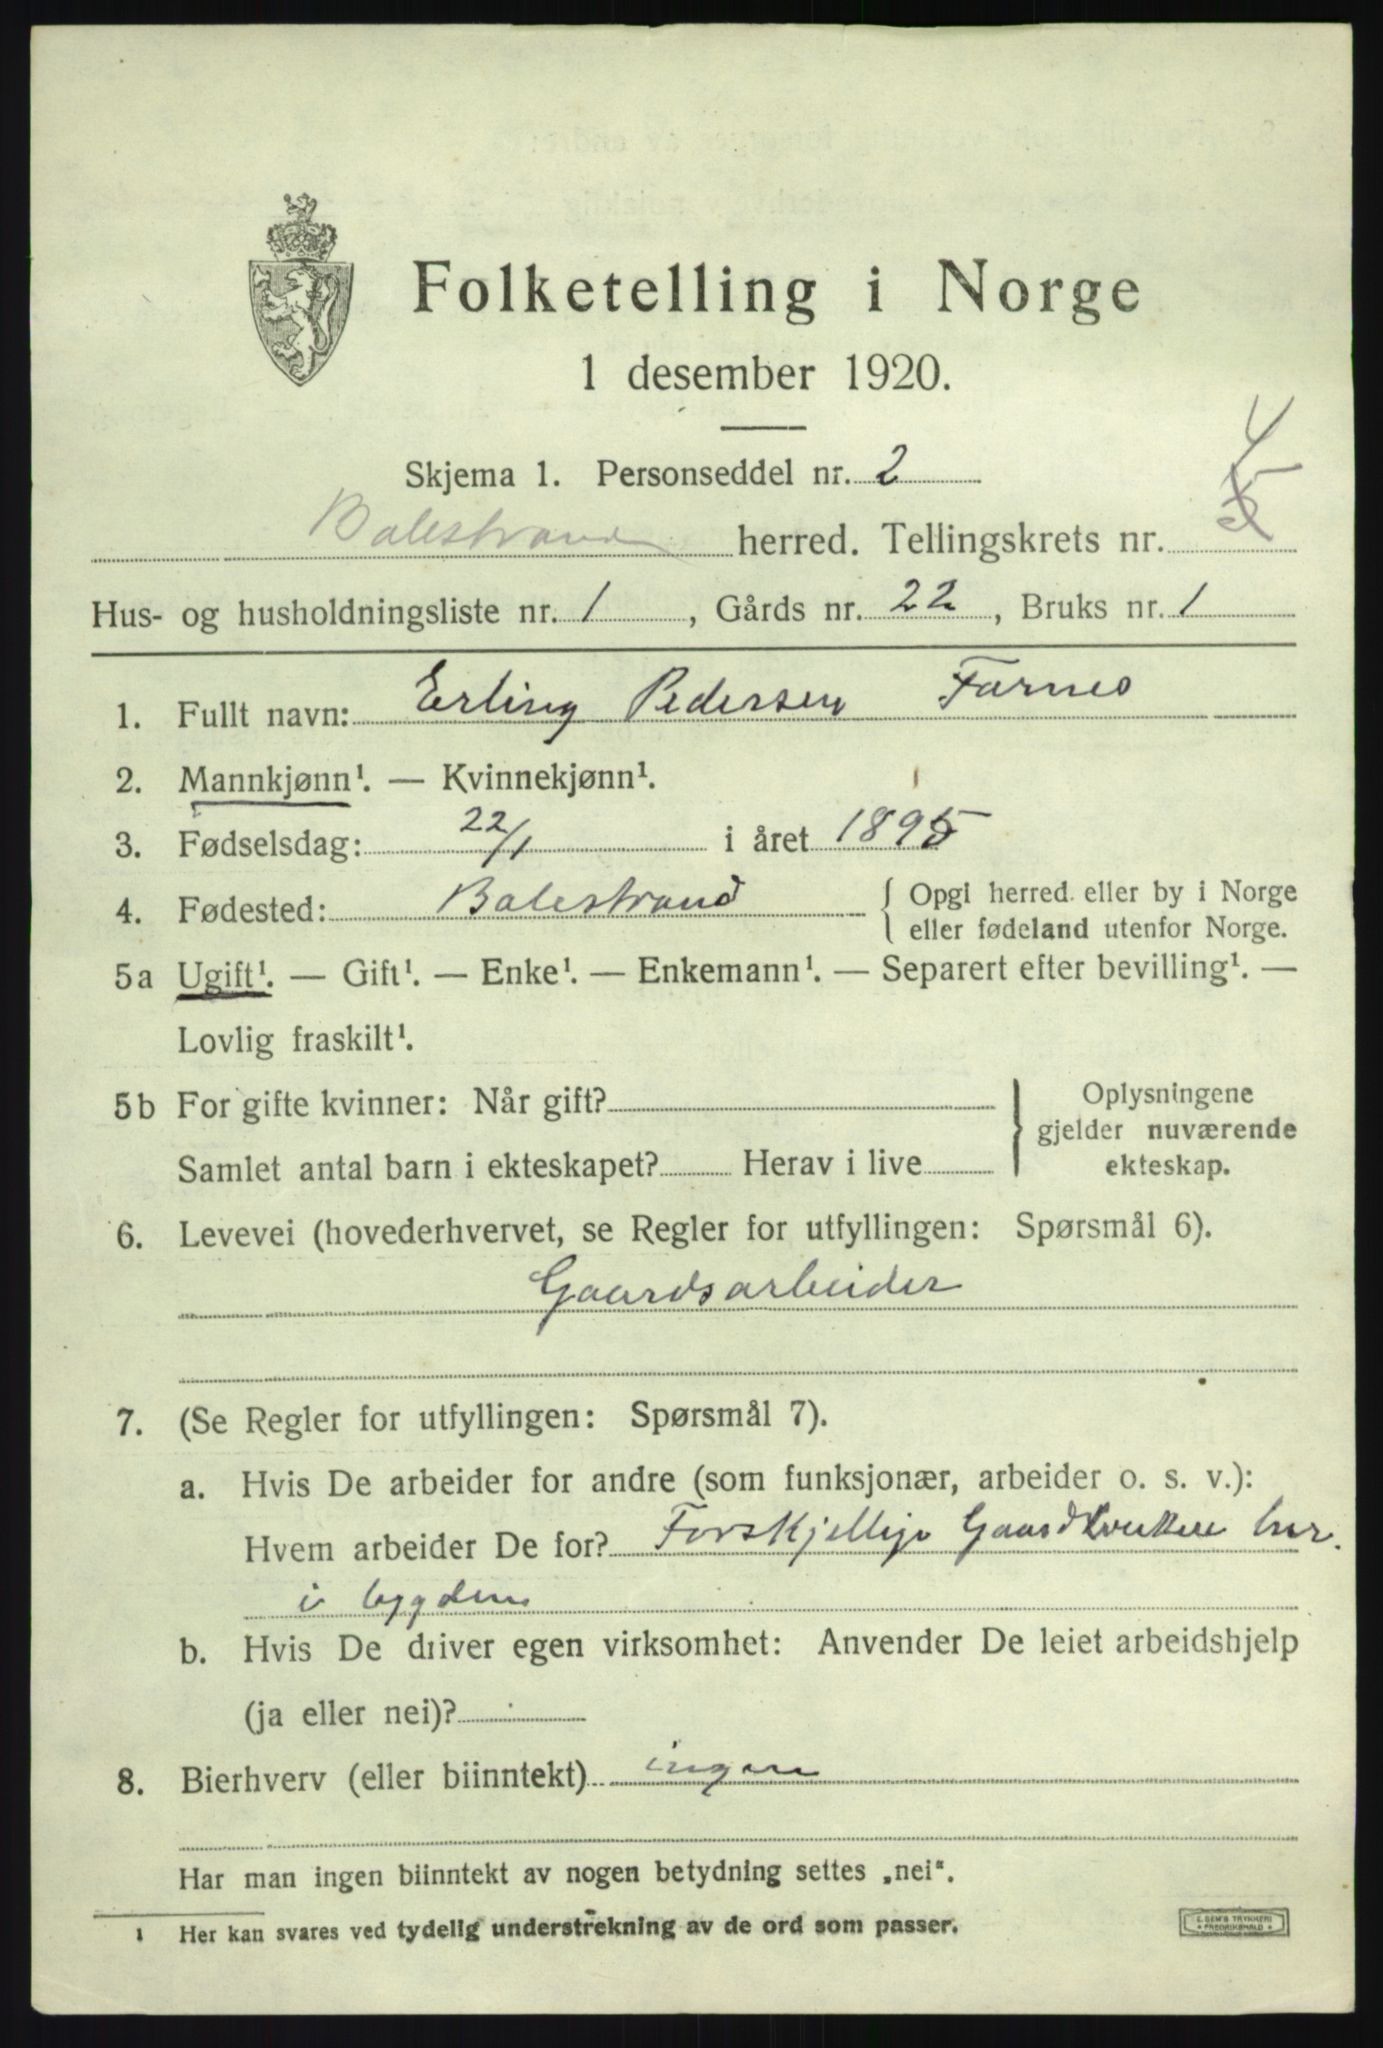 Folketelling i Norge
1 desember 1920.
Skjema 1. Personseddel nr. 2
4
Balestrand herred. Tellingskrets nr. 5
Hus- og husholdningsliste nr. 1, Gårds nr. 22, Bruks nr. 1
1. Fullt navn: Erling Pedersen Farnes
2. Mannkjønn¹. — Kvinnekjønn¹.
3. Fødselsdag: 22/1 i året 1895
4. Fødested: Balestrand { Opgi herred eller by i Norge
eller fødeland utenfor Norge.
5a Ugift¹. — Gift¹. — Enke¹. — Enkemann¹. — Separert efter bevilling¹. —
Lovlig fraskilt¹.
5b For gifte kvinner: Når gift? } Oplysningene
gjelder nuværende
Samlet antal barn i ekteskapet? Herav i live ekteskap.
6. Levevei (hovederhvervet, se Regler for utfyllingen: Spørsmål 6).
Gaardsarbeider
7. (Se Regler for utfyllingen: Spørsmål 7).
a. Hvis De arbeider for andre (som funksjonær, arbeider o. s. v.):
Hvem arbeider De for? Forskjellige Gaardbrukere her
i bygden
b. Hvis De driver egen virksomhet: Anvender De leiet arbeidshjelp
(ja eller nei)?
8. Bierhverv (eller biinntekt) ingen
Har man ingen biinntekt av nogen betydning settes „nei“.
1 Her kan svares ved tydelig understrekning av de ord som passer.
E. SEM'S TRYKKERI
* FREDRIKSHALD *